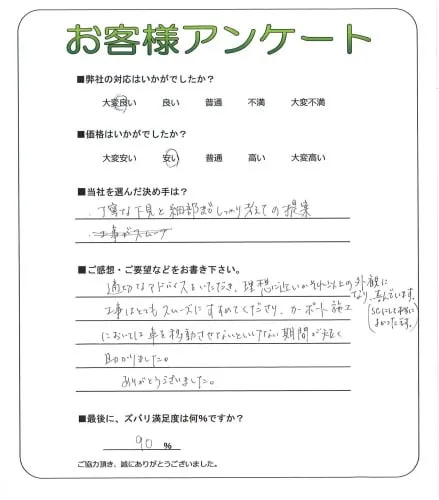 お客様アンケート
■弊社の対応はいかがでしたか？
大変良い 良い 普通 不満 大変不満
■価格はいかがでしたか？
大変安い 安い 普通 高い 大変高い
■当社を選んだ決め手は？
・丁寧な下見と細部までしっかり考えての提案
・工事がスムーズ
■ご感想・ご要望などをお書き下さい。
適切なアドバイスをいただき、理想に近いかそれ以上の外観に
なり、喜んでいます。
工事はとてもスムーズにすすめてくださり、カーポート施工
においては車を移動させないといけない期間が短く
助かりました。
ありがとうございました。
(にして本当に
よかったです。)
■最後に、ズバリ満足度は何%ですか？
90 %
ご協力頂き、誠にありがとうございました。